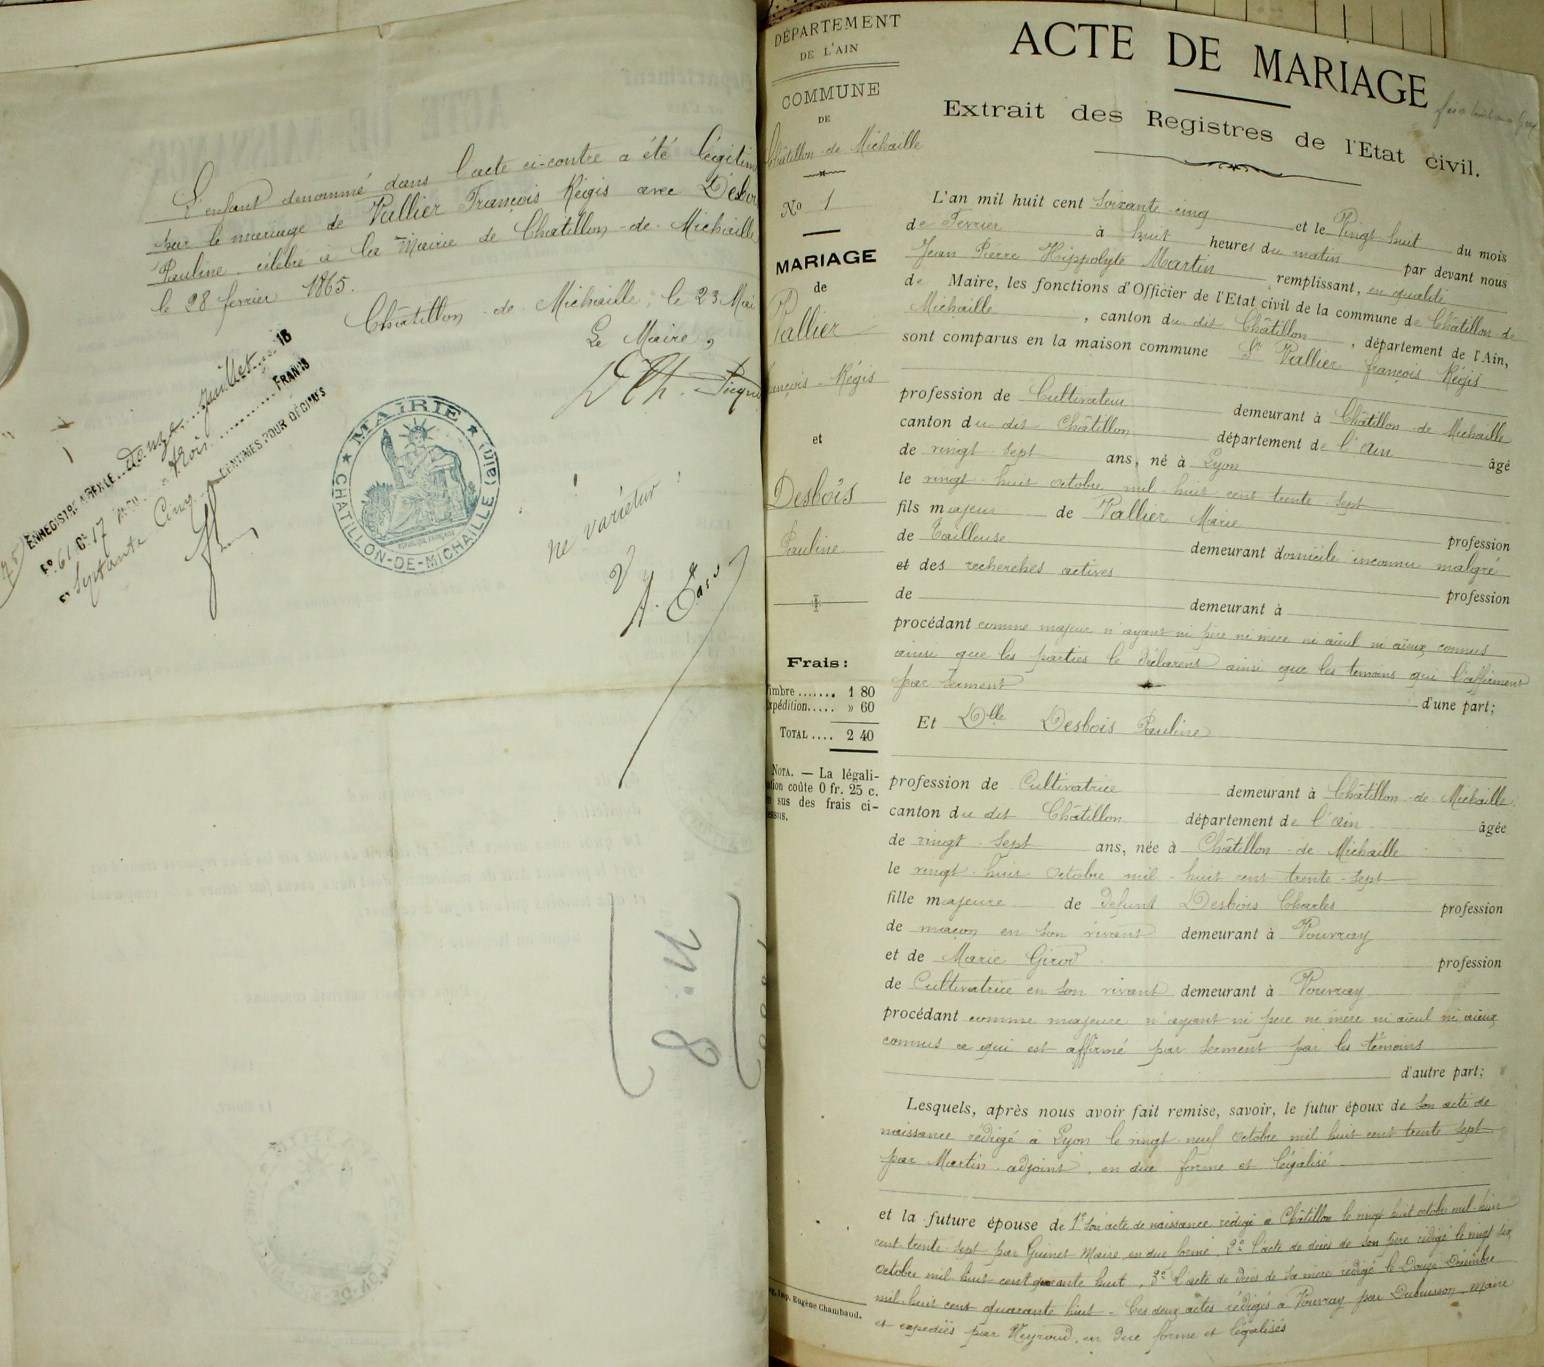 L'enfant denommé dans l'acte ci-contre a été légitim
par le mariage de Vallier François Régis avec Desboi
Pauline célébré à la Mairie de Châtillon-de-Michaille
le 28 février 1865.
Châtillon-de-Michaille, le 23 Mai
Le Maire,
ENREGISTRÉ A GEX LE douze juillet 18
Fo. 61 Co. 17 REÇU trois FRANCS
ET Septante Cinq CENTIMES POUR DÉCIMES
MAIRIE
CHATILLON-DE-MICHAILLE (AIN)
ne varietur
N. 8
DÉPARTEMENT
DE L'AIN
COMMUNE
DE
Châtillon-de-Michaille
No 1
MARIAGE
de
Vallier
François-Régis
et
Desbois
Pauline
Frais:
Timbre ....... 1 80
Expédition..... » 60
TOTAL .... 2 40
NOTA. — La légali-
ation coûte 0 fr. 25 c.
sus des frais ci-
essus.
Imp. Eugène Chambaud.
ACTE DE MARIAGE
Extrait des Registres de l'Etat civil.
L'an mil huit cent Soixante cinq et le Vingt huit du mois
de Fevrier à huit heures du matin par devant nous
Jean Pierre Hippolyte Martin remplissant, en qualité
de Maire, les fonctions d'Officier de l'Etat civil de la commune de Châtillon de
Michaille, canton du dit Châtillon, département de l'Ain,
sont comparus en la maison commune Sr Vallier françois Régis
profession de Cultivateur demeurant à Châtillon-de-Michaille
canton du dit Châtillon département de l'ain âgé
de vingt-sept ans, né à Lyon
le vingt-huit octobre mil-huit cent trente-sept
fils majeur de Vallier Marie profession
de Tailleuse demeurant domicile inconnu malgré
et des recherches actives profession
de demeurant à
procédant comme majeur n'ayant ni père ni mère ni aïeul ni aïeux connus
ainsi que les parties le déclarent ainsi que les temoins qui l'affirment
par serment d'une part;
Et Dlle Desbois Pauline
profession de Cultivatrice demeurant à Châtillon-de-Michaille
canton du dit Châtillon département de l'ain âgée
de vingt-sept ans, née à Châtillon-de-Michaille
le vingt-huit octobre mil-huit cent trente-sept
fille majeure de défunt Desbois Charles profession
de maçon en son vivant demeurant à Vouvray
et de Marie Girod profession
de Cultivatrice en son vivant demeurant à Vouvray
procédant comme majeure n'ayant ni père ni mère ni aïeul ni aïeux
connus ce qui est affirmé par serment par les témoins
d'autre part;
Lesquels, après nous avoir fait remise, savoir, le futur époux de son acte de
naissance rédigé à Lyon le vingt-neuf octobre mil huit cent trente sept
par Martin adjoint, en due forme et légalisé
et la future épouse de 1o son acte de naissance rédigé à Châtillon le vingt huit octobre mil-huit
cent trente sept par Guinet Maire en due forme, 2o l'acte de décès de son père rédigé le vingt six
octobre mil huit cent quarante huit, 3o l'acte de décès de sa mère rédigé le Douze Décembre
mil-huit cent quarante huit - Ces deux actes rédigés à Vouvray par Dubuisson maire
et expediés par Neyroud, en due forme et légalisés